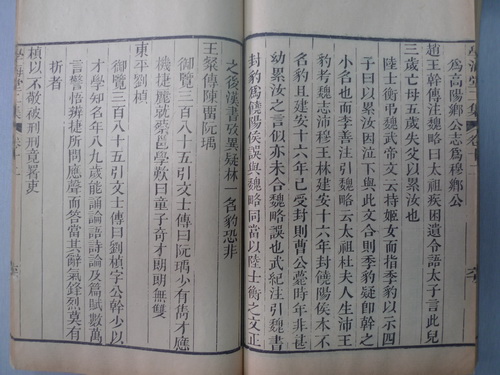 學海堂二集
卷十二
為高陽鄉公志為穆鄉公
趙王幹傳注魏略曰太祖疾困遺令語太子言此兒
三歲亡母五歲失父以累汝也
陸士衡弔魏武帝文云持姬女而指季豹以示四
子曰以累汝因泣下與此文合則季豹疑卽幹之
小名也而李善注引魏略云太祖杜夫人生沛王
豹考魏志沛穆王林建安十六年封饒陽侯林不
名豹且建安十六年已受封則曹公薨時年非甚
幼累汝之言似亦未合魏略誤也武紀注引魏書
封豹為饒陽侯誤與魏略同當以陸士衡之文正
之後漢書攷異疑林一名豹恐非
王粲傳陳畱阮瑀
御覽三百八十五引文士傳曰阮瑀少有雋才應
機捷麗就蔡邕學歎曰童子奇才朗朗無雙
東平劉楨
御覽三百八十五引文士傳曰劉楨字公幹少以
才學知名年八九歲能誦論語詩論及篇賦數萬
言警悟辨捷所問應聲而答當其辭氣鋒烈莫有
折者
楨以不敬被刑刑竟署吏
學海堂二集
卷十二